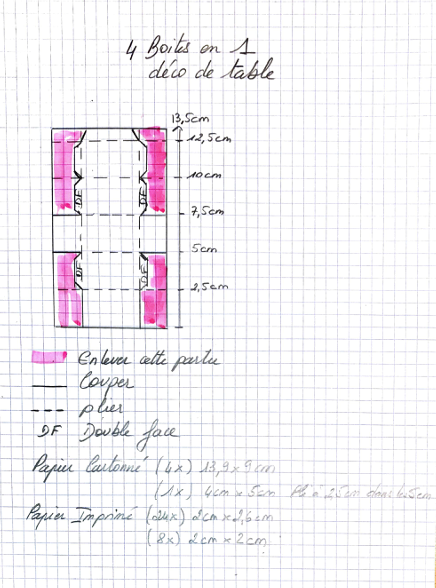 4 Boites en 1
déco de table
13,5cm
12,5cm
10cm
DF DF
7,5cm
5cm
DF DF
2,5cm
Enlever cette partie
Couper
plier
DF Double face
Papier Cartonné (4x) 13,9x9cm
(1x) 4cm x 5cm Pli à 2,5cm dans les 5cm
Papier Imprimé (24x) 2cm x 2,6cm
(8x) 2cm x 2cm